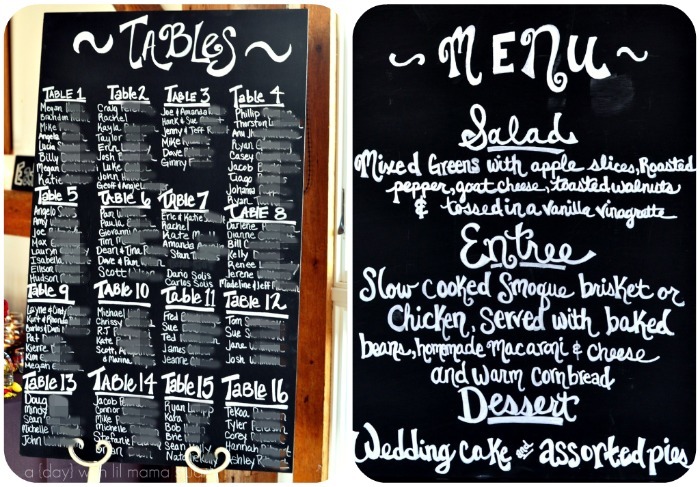 ~ TABLES ~
Table 1
Megan
Brandon
Mike
Angela
Lucia
Billy
Megan
Katie
Table 2
Craig
Rachel
Kayla
Taylor
Erin
Josh
Luke
John
Geoff & Angel
Table 3
Joe & Amanda
Hank & Sue
Jenny & Jeff
Mike
Dave
Ginny
Table 4
Phillip
Thurston
Ryan
Casey
Jacob
Tiago
Johanna
Ryan
Table 5
Angelo
Amy
Joe
Max
Lauryn
Isabella
Ellison
Hudson
Table 6
Pam
Paula
Giovanni
Tim
Dean & Tina
Dave & Pam
Scott
Table 7
Eric & Katie
Rachel
Kate
Amanda
Stan
Dario Solis
Carlos Solis
Table 8
Darlene
Dianne
Bill
Kelly
Renee
Jerene
Madeline & Jeff
Table 9
Layne & Cindy
Kurt & Rhonda
Pat
Kierra
Kim
Megan
Table 10
Michael
Chrissy
R.T
Kate
Scott,
& Marina
Table 11
Fred
Sue
Ted
James
Jeanne
Table 12
Tom
Sue
Jane
Josh
Table 13
Doug
Mindy
Sean
Michelle
John
Table 14
Jacob
Connor
Mike
Michelle
Stefanie
Brian
Table 15
Ryan
Kara
Bob
Brie
Sean
Table 16
Tekoa
Tyler
Corey
Hannah
Ashley
a {day} with lil mama
~ MENU ~
Salad
Mixed Greens with apple slices, Roasted
pepper, goat cheese, toasted walnuts
& tossed in a vanilla vinagrette
Entree
Slow cooked Smoque brisket or
Chicken, Served with baked
beans, homemade macaroni & cheese
and warm cornbread
Dessert
Wedding cake and assorted pies